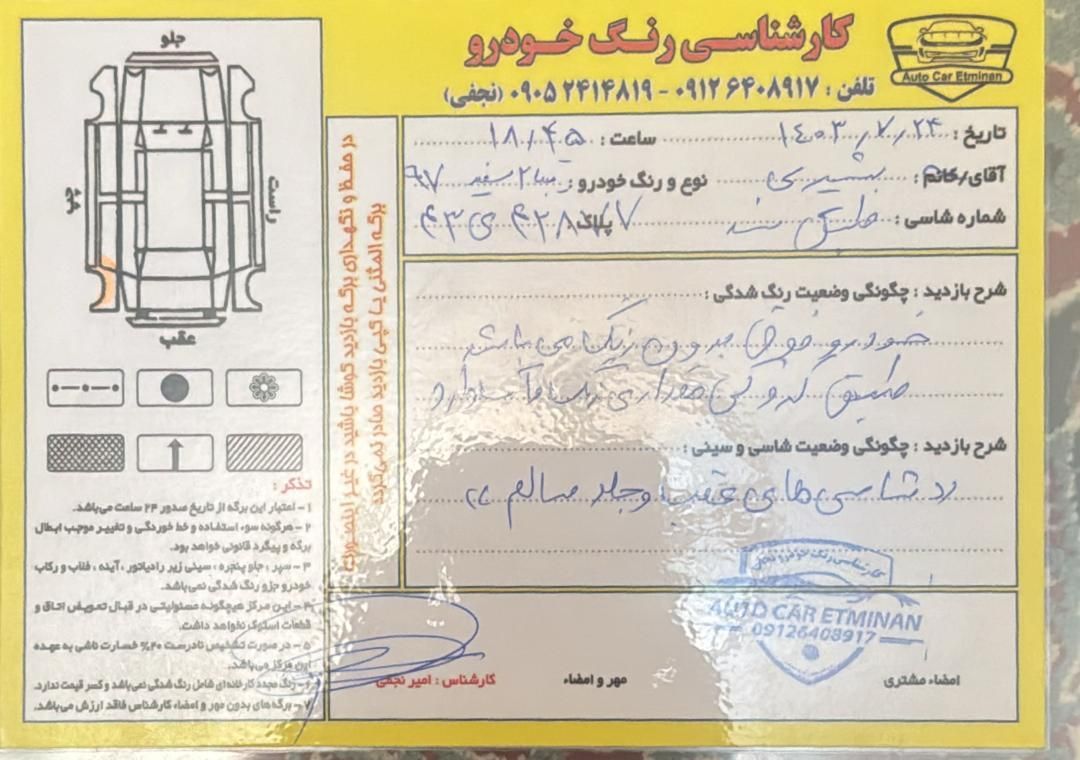 کارشناسی رنگ خودرو
Auto Car Etminan
تلفن : ۰۹۱۲۶۴۰۸۹۱۷ - ۰۹۰۵۲۴۱۴۸۱۹ (نجفی)
تاریخ : ۱۴۰۳/۷/۲۴ ساعت : ۱۸/۴۵
آقای/خانم : بشیری نوع و رنگ خودرو : ساینا ۲ سفید ۹۷
شماره شاسی : طبق سند پلاک :
شرح بازدید : چگونگی وضعیت رنگ شدگی :
خودرو فوق بدون رنگ می باشد
طبق کروکی مقداری
شرح بازدید : چگونگی وضعیت شاسی و سینی :
شاسی های عقب و جلو سالم
AUTO CAR ETMINAN
09126408917
امضاء مشتری
مهر و امضاء
کارشناس : امیر نجفی
در حفظ و نگهداری برگه بازدید کوشا باشید در غیر اینصورت
برگه المثنی یا کپی بازدید صادر نمی گردد
جلو
راست
چپ
عقب
تذکر :
۱- اعتبار این برگه از تاریخ صدور ۲۴ ساعت می‌باشد.
۲- هرگونه سوء استفاده و خط خوردگی و تغییر موجب ابطال
برگه و پیگرد قانونی خواهد بود.
۳- سپر ، جلو پنجره ، سینی زیر رادیاتور ، آینه ، قلاب و رکاب
خودرو جزو رنگ شدگی نمی‌باشد.
۴- این مرکز هیچگونه مسئولیتی در قبال تعویض اتاق و
قطعات استوک نخواهد داشت.
۵- در صورت تشخیص نادرست ۲۰% خسارت ناشی به عهده
این مرکز می‌باشد.
۶- رنگ مجدد کارخانه ای شامل رنگ شدگی نمی‌باشد و کسر قیمت ندارد.
۷- برگه‌های بدون مهر و امضاء کارشناس فاقد ارزش می‌باشد.